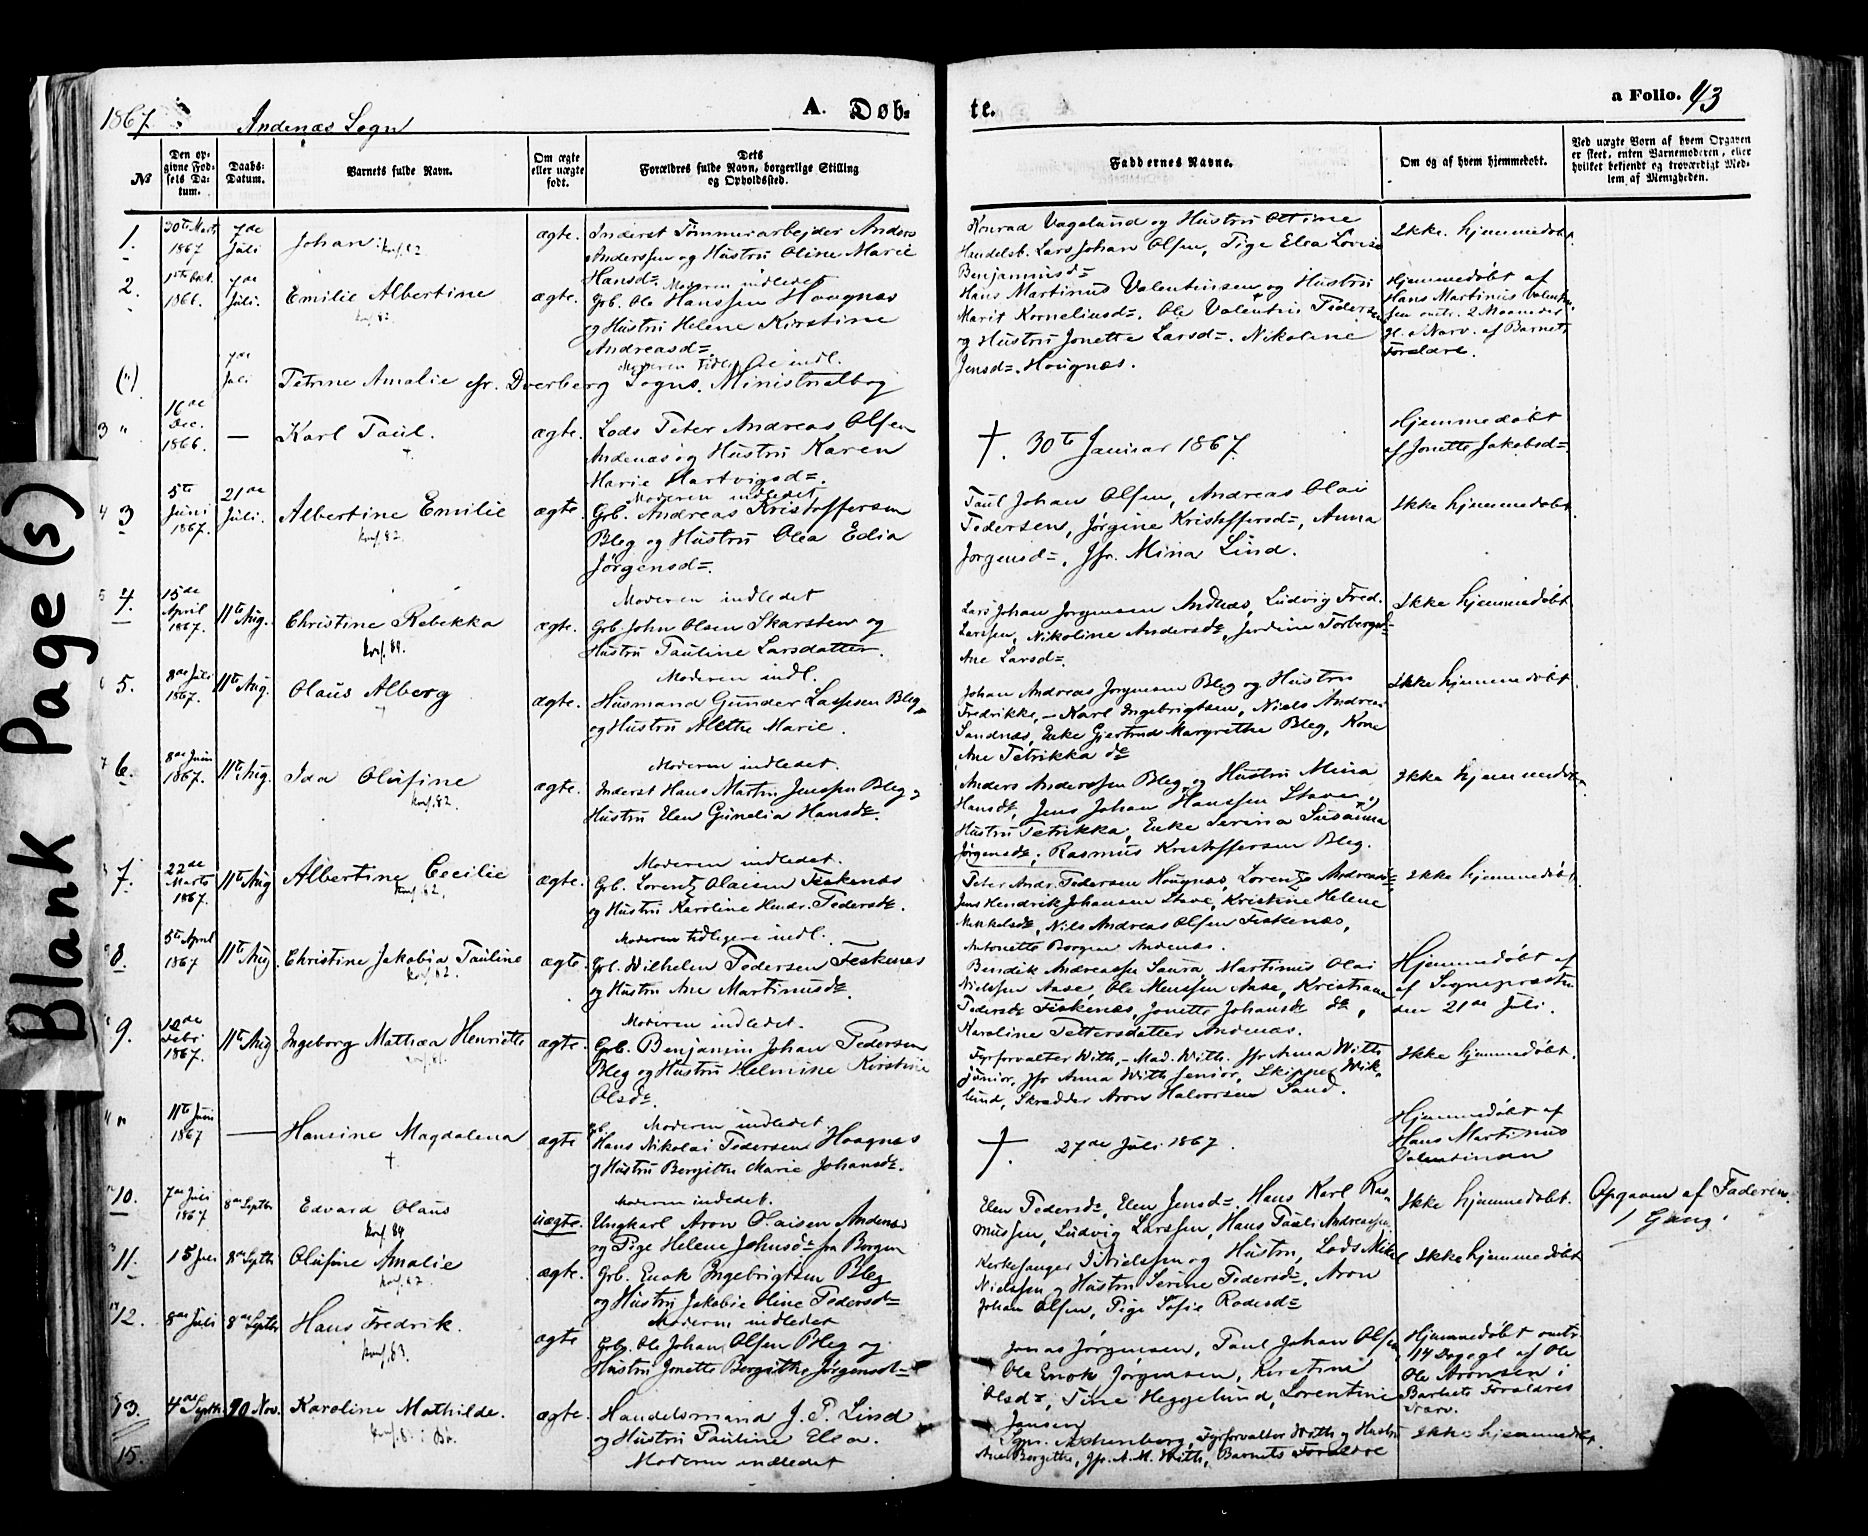 1867
Andenæs Sogn
A. Døb-
te.
a Folio. 93
Blank Page(s)
№
Den op-
givne Fød-
sels Da-
tum.
Daabs-
Datum.
Barnets fulde Navn.
Om ægte
eller uægte
født.
Dets
Forældres fulde Navn, borgerlige Stilling
og Opholdssted.
Faddernes Navne.
Om og af hvem hjemmedøbt.
Ved uægte Børn af hvem Opgaven
er skeet, enten Barnemoderen, eller
hvilket bekjendt og troværdigt Med-
lem af Menigheden.
1. 30te Marts 1867 7de Juli Johan: konf. 82 ægte.
Inderst Tømmerarbejder Anders
Anderssen og Hustru Oline Marie
Hansd= Moderen indledet
Konrad Vagelund og Hustru Ottine
Handelsb. Lars Johan Olsen, Pige Elea Lovise
Benjaminsd=
Ikke hjemmedøbt.
2. 1866. 7de Juli. Emilie Albertine konf. 82 ægte.
Grb. Ole Hanssen Hougnæs
og Hustru Helene Kirstine
Andreasd=.
Hans Martinus Valentinsen og Hustru
Marit Korneliusd=. Ole Valentin Pedersen
og Hustru Jonette Larsd=. Nikoline
Jensd=. Hougnæs.
Hjemmedøbt af
Hans Martinus Valentin-
sen omtr. 2 Maaneder
gl. i Nærv. af Barnets
Forældre.
(") 7de Juli Petrine Amalie cfr. Dverberg Sogns Ministrialbog
Moderen tidl. indl.
3 " 16de Dec. 1866. — Karl Paul. † ægte.
Lods Peter Andreas Olsen
Andenæs og Hustru Karen
Marie Hartvigsd=.
Moderen indledet
†. 30te Januar 1867.
Hjemmedøbt
af Jonette Jakobsd=
4 3 5te Juni 1867. 21de Juli. Albertine Emilie konf. 82. ægte.
Grb. Andreas Kristoffersen
Bleg og Hustru Olea Edia
Jørgensd=.
Paul Johan Olsen, Andreas Olai
Pedersen, Jørgine Kristoffersd=, Anna
Jørgensd=, Jfr. Mina Lind.
Ikke hjemmedøbt.
5 4. 15de April 1867. 11te Aug. Christine Rebekka konf. 84. ægte.
Moderen indledet
Grb. John Olsen Skarsten og
Hustru Pauline Larsdatter.
Lars Johan Jørgensen Andnæs, Ludvig Fred.
Larssen, Nikoline Andersd=,
Ane Larsd=.
Ikke hjemmedøbt.
6 5. 8de Juli 1867. 11te Aug. Olaus Alberg † ægte.
Moderen indl.
Husmand Gunder Lassesen Bleg
og Hustru Alethe Marie.
Johan Andreas Jørgensen Bleg og Hustru
Fredrikke, — Karl Ingebrigtsen, Niels Andreas
Sandnæs, Enke Gjertrud Margrethe Bleg, Kone
Ane Petrikka de
Ikke hjemmedøbt.
7 6. 8de Juni 1867. 11te Aug. Ida Olufine konf. 82. ægte.
Moderen indledet.
Inderst Hans Martin Jenssen Bleg og
Hustru Elen Gunelia Hansd=.
Anders Anderssen Bleg og Hustru Mina
Hansd=, Jens Johan Hanssen Stave og
Hustru Petrikka, Enke Serina Susanna
Jørgensd=, Rasmus Kristoffersen Bleg.
Ikke hjemmedøbt.
7. 22de Marts 1867. 11te Aug Albertine Cecilie konf. 82. ægte.
Moderen indledet.
Grb. Lorentz Olaisen Fiskenæs
og Hustru Karoline Hendr. Pedersd=.
Peter Andr. Pedersen Hougnæs, Lorentze Andreasd=
Jens Hendrik Johansen Stave, Kristine Helene
Mikkelsd=, Nils Andreas Olsen Fiskenæs,
Antonette Borgen Andenæs.
Ikke hjemmedøbt.
8. 5te April 1867 11te Aug Christine Jakobia Pauline konf. 82. ægte.
Moderen tidligere indl.
Grb. Wilhelm Pedersen Feskenæs
og Hustru Ane Martinusd=.
Bendik Andreassen Saura, Martinus Olai
Nielssen Aase, Ole Monssen Aase, Kristiane
Pedersd= Fiskenæs, Jonette Johansd= de,
Karoline Pettersdatter Andenæs.
Hjemmedøbt af
af Sognepræsten
den 21de Juli.
9. 12de Febr. 1867. 11te Aug Ingeborg Mathea Henriette ægte.
Moderen indledet.
Grb. Benjamin Johan Pedersen
Bleg og Hustru Helmine Kirstine
Olsd=.
Fyrforvalter With, — Mad. With. Jfr Anna With
junior, Jfr Anna With senior, Skipper Wik-
lund, Skrædder Aron Halvorsen Sand.
Ikke hjemmedøbt.
" 11te Juni 1867 — Hansine Magdalena † ægte
Moderen indledet
Hans Nikolai Pedersen Hougnæs
og Hustru Bergithe Marie Johansd=.
†. 27de Juli 1867.
Hjemmedøbt af
Hans Martinus
Valentinsen
10. 7de Juli 1867 8de Septbr Edvard Olaus konf. 84 uægte.
Moderen indledet.
Ungkarl Aron Olaisen Andenæs
og Pige Helene Johnsd= fra Borgen
Elen Pedersd=, Elen Jensd=, Hans Karl Ras-
mussen, Ludvig Larssen, Hans Pauli Andreassen.
Ikke hjemmedøbt.
Opgaven af Faderen.
1 Gang.
11. 15 Juli 8de Septbr Olufine Amalie konf. 82. ægte.
Grb. Enok Ingebrigtsen Bleg
og Hustru Jakobie Oline Pedersd=
Moderen indledet
Kirkesanger I Nielssen og Hustru, Lods Mikal
Nielssen og Hustru Serine Pedersd=, Aron
Johan Olsen, Pige Sofie Rodesd=
Ikke hjemmedøbt
12. 8de Juli 8de Septbr Hans Fredrik. konf. 83. ægte
Grb. Ole Johan Olsen Bleg og
Hustru Jonette Bergithe Jørgensd=
Jonas Jørgensen, Paul Johan Olsen
Ole Enok Jørgensen, Kirstine
Olsd=, Tine Heggelund, Lorentine
Jensen
Hjemmedøbt omtr.
14 Dage gl. af Ole
Ole Aronsen i
Barnets Forældres
Nærv.
13. 4de Septbr 10 Nov. Karoline Mathilde. ægte.
Handelsmand J. P. Lind
og Hustru Pauline Elea.
Moderen indledet
Fyrforvalter With og Hustru
Ane Bergithe, Jfr. A. M. With, Barnets Forældre
Ikke hjemmedøbt.
15.